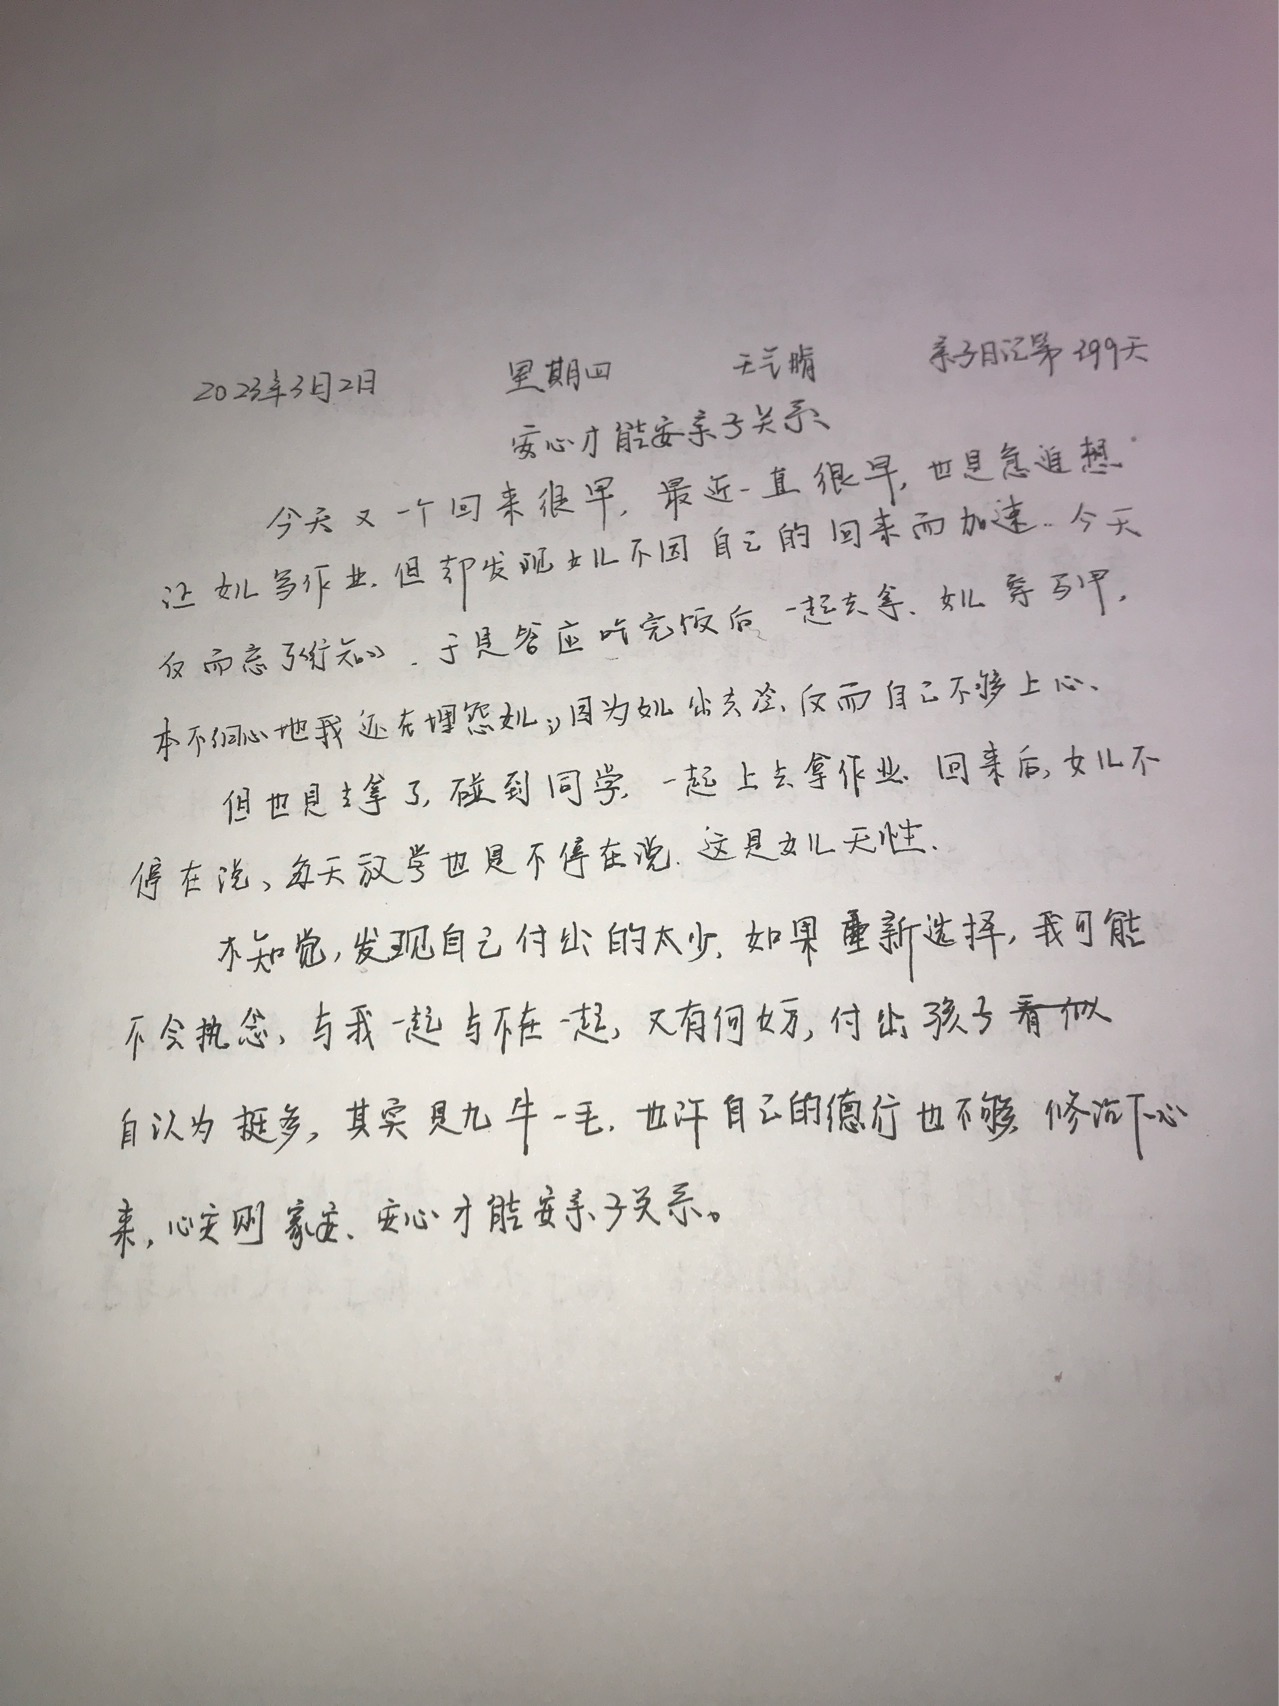 2023年3月2日 星期四 天气晴 亲子日记第399天
安心才能安亲子关系
今天又一个回来很早,最近一直很早,也是急迫想
让女儿写作业.但却发现女儿不因自己的回来而加速..今天
反而忘了.于是答应吃完饭后一起去拿、女儿穿马甲,
本不但心地我还在埋怨女儿,因为女儿出去冷,反而自己不够上心、
但也是去拿了,碰到同学,一起上去拿作业.回来后,女儿不
停在说、每天放学也是不停在说.这是女儿天性.
不知觉,发现自己付出的太少,如果重新选择,我可能
不会执念,与我一起与不在一起,又有何妨,付出孩子看似
自认为挺多,其实是九牛一毛.也许自己的德行也不够,修沉下心
来,心安则家安、安心才能安亲子关系。